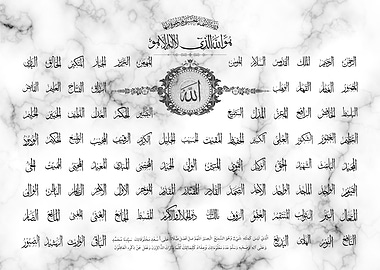 هو الله الذي لا اله الا هو
الرحمن الرحيم الملك القدوس السلام المؤمن المهيمن العزيز الجبار المتكبر الخالق البارئ
المصور الغفار القهار الوهاب الله الرزاق الفتاح العليم القابض
الباسط الخافض الرافع المعز المذل السميع البصير الحكم العدل اللطيف الخبير الحليم
العظيم الغفور الشكور العلي الكبير الحفيظ المقيت الحسيب الجليل الكريم الرقيب المجيب الواسع الحكيم الودود
المجيد الباعث الشهيد الحق الوكيل القوي المتين الولي الحميد المحصي المبدئ المعيد المحيي المميت الحي
القيوم الواجد الماجد الواحد الصمد القادر المقتدر المقدم المؤخر الأول الآخر الظاهر الباطن الوالي المتعالي
البر التواب المنتقم العفو الرؤوف مالك الملك ذو الجلال والإكرام المقسط الجامع الغني المغني المانع الضار
النافع النور الهادي البديع الباقي الوارث الرشيد الصبور